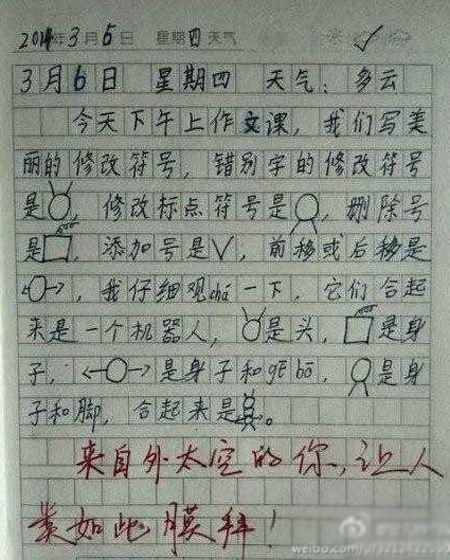 2014年3月6日 星期四天气
3月6日 星期四 天气：多云
今天下午上作文课，我们写美
丽的修改符号，错别字的修改符号
是，修改标点符号是，删除号
是，添加号是，前移或后移是
，我仔细观chá一下，它们合起
来是一个机器人，是头，是身
子，是身子和gēbō，是身
子和脚，合起来是。
来自外太空的你，让人
类如此膜拜！
weibo.com/